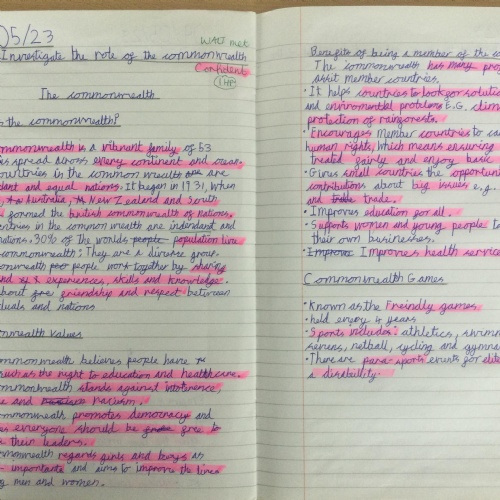 05/23
Investigate the role of the commonwealth
WALT met
Confident
1HP
The commonwealth
the commonwealth?
ommonwealth is a vibrant family of 53
spread across every continent and ocean.
ountries in the common wealth are
dant and equal nations. It began in 1931, when
Australia, New Zealand and South
formed the british commonwealth of nations.
ntries in the common wealth are indendant and
nations. 30% of the worlds people population live
commonwealth. They are a diverse group.
onwealth peop people work together by sharing
experiences, skills and knowledge.
about are friendship and respect between
duals and nations
onwealth values
ommonwealth believes people have
such as the right to education and healthcare.
ommonwealth stands against intolerence,
and racism.
ommonwealth promotes democracy and
es everyone should be free to
their leaders.
ommonwealth regards girls and boys as
importante and aims to improve the lives
men and women.
Benefits of being a member of the co
The commonwealth has many pro
assit member countries.
• It helps countries to look for solution
and enviromental problems E.G. clim
protection of rainforests.
• Encourages member countries to
human rights, which means ensuring
treated fairly and enjoy basic
• Gives small countries the opportun
contributions about big issues e.g.
and trade.
• Improves education for all.
• Supports women and young people to
their own businesses.
• Improves Improves health service
Commonwealth Games
• Known as the Freindly games.
• held every 4 years
• Sports includes: athletics, swimm
sevens, netball, cycling and gymna
• There are para-sports events for
a disability.